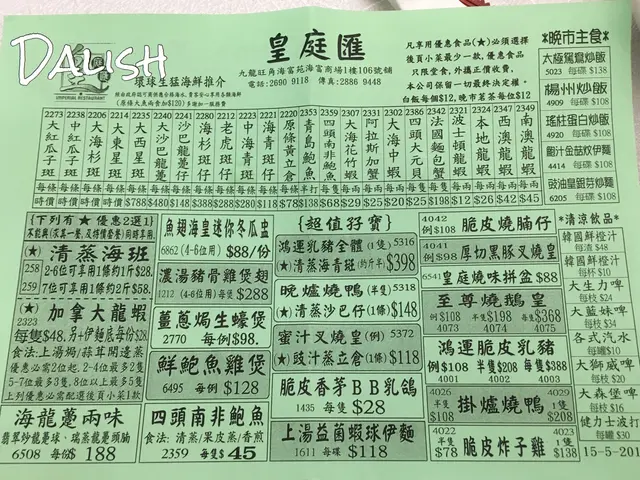 DALISH
皇庭匯
UNIPERIAL RESTAURANT
環球生猛海鮮推介
九龍旺角海富苑海富商場1樓106號舖
電話:2690 9118 傳真:2886 9448
(原條大魚兩食加$120)
凡享用優惠食品(★)必須選擇
後頁小菜最少一款,優惠食品
只限堂食,外攜正價收費,
本公司保留一切最終決定權。
白飯每個$12,晚市茗茶每位$12
*晚市主食*
太極鴛鴦炒飯
5023 每碟 $138
楊州炒飯
4909 每碟 $108
瑤柱蛋白炒飯
4920 每碟 $108
鮑汁金菇炆伊麵
4414 每碟 $108
豉油皇銀芽炒麵
6205 每碟 $108
2273 大紅瓜子斑 每條 時價
2238 中紅瓜子斑 每條 時價
2206 大海杉斑 每條 時價
2214 大東星斑 每條 時價
2215 大西星斑 每條 $788
2240 大芝麻斑 每條 $480
2241 沙巴龍躉仔 每條 $148
2280 海杉斑仔 每條 $388
2212 老虎斑仔 每條
2223 海青斑仔 每條
2221 海青斑 每條
2220 原條黃立倉 每條 $78
2353 青島鮑魚 半打 $138
2369 四頭鮑魚 每隻 $68
2327 大海花竹蝦 每隻 $29
2331 阿拉斯加蟹 每兩 $25
2302 大海中蝦 每兩 $20
2385 四頭大元貝 每隻 $25
2346 法國麵包蟹 每隻 $198
2342 波士頓龍蝦 每隻
2321 本地龍蝦 每兩 $48
2324 西澳龍蝦 每兩 $40
2347 南澳龍蝦 每兩 $50
2349
[下列有★優惠2選1]
(★)清蒸海斑
258 2-6位可享用1條約1斤$28.
259 7位可享用1條約2斤$58.
(★)加拿大龍蝦
2323 每隻$48.另+伊麵底每份$28
食法:上湯焗/蒜茸開邊蒸
優惠必需2位起,2-4位最多2隻
5-7位最多3隻,8位以上最多5隻
上列優惠必需配選後頁小菜1款
海龍躉兩味
翡翠炒龍躉球、瑞蒸龍躉頭腩
6508 每份$ 188
魚翅海皇迷你冬瓜盅
6862 (4-6位用) $88/份
濃湯豬骨雞煲翅
1212 (4-6位用)每煲$288
薑蔥焗生蠔煲
2770 每例$98.
鮮鮑魚雞煲
6495 每例$128
四頭南非鮑魚
食法:清蒸/果皮蒸/香煎
2359 每隻$45
{超值孖寶}
鴻運乳豬全體(1隻) 5316
(★)清蒸海青斑(約斤半)$398
晚爐燒鴨(半隻) 5318
(★)清蒸沙巴仔(1條)$148
蜜汁叉燒皇(例) 5372
(★)豉汁蒸立倉(1條)$118
脆皮香茅BB乳鴿
1435 每隻$28
上湯益菌蝦球伊麵
1611 每碟$118
4042 脆皮燒腩仔
例$108
4041 厚切黑豚叉燒皇
例$98
6541 皇庭燒味拼盆$88
至尊燒鵝皇
例$108 半隻$198 每隻$368
4073 4074 4075
鴻運脆皮乳豬
例$108 半隻$208 每隻$388
4001 4002 4003
4026 掛爐燒鴨 4029
例$108 1隻$208
4022 脆皮炸子雞 4023
半隻$78 1隻$138
*清涼飲品*
韓國鮮橙汁
每渣$48
韓國鮮橙汁
每杯$10
大生力啤
每枝$24
大藍妹啤
每枝$34
各式汽水
每罐$10
大獅威啤
每枝$20
大森堡啤
每枝$16
健力士波打
每罐$30
15-5-201